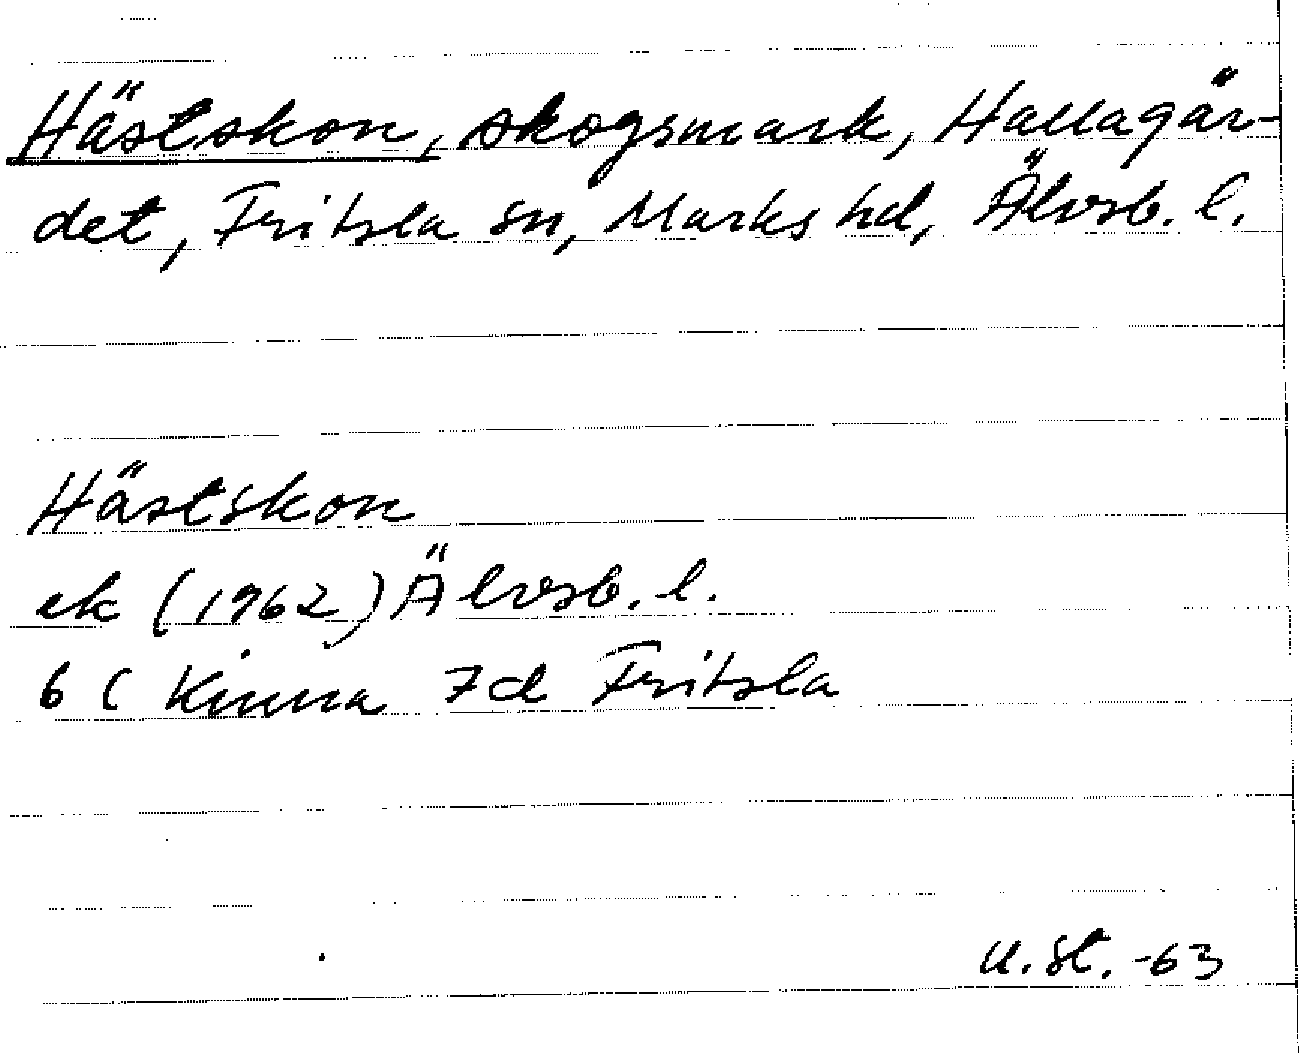 Hästskon, skogsmark, Hallagär-
det, Fritsla sn, Marks hd, Älvsb. l.
Hästskon
ek (1962) Älvsb. l.
6 C Kinna 7d Fritsla
U. St. -63